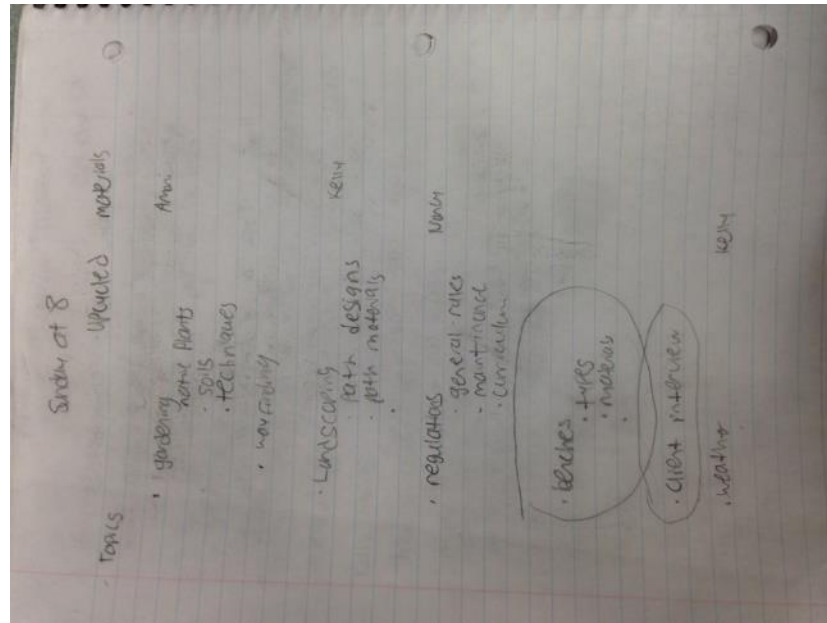 Sunday at 8
Topics Upcycled materials
· gardening
· native Plants
· Soils
· techniques
· wayfinding
· Landscaping Kelly
path designs
· path materials
·
· regulations Nancy
· general rules
· maintinence
· curriculum
· benches
· types
· materials
·
· Client interview
· weather Kelly